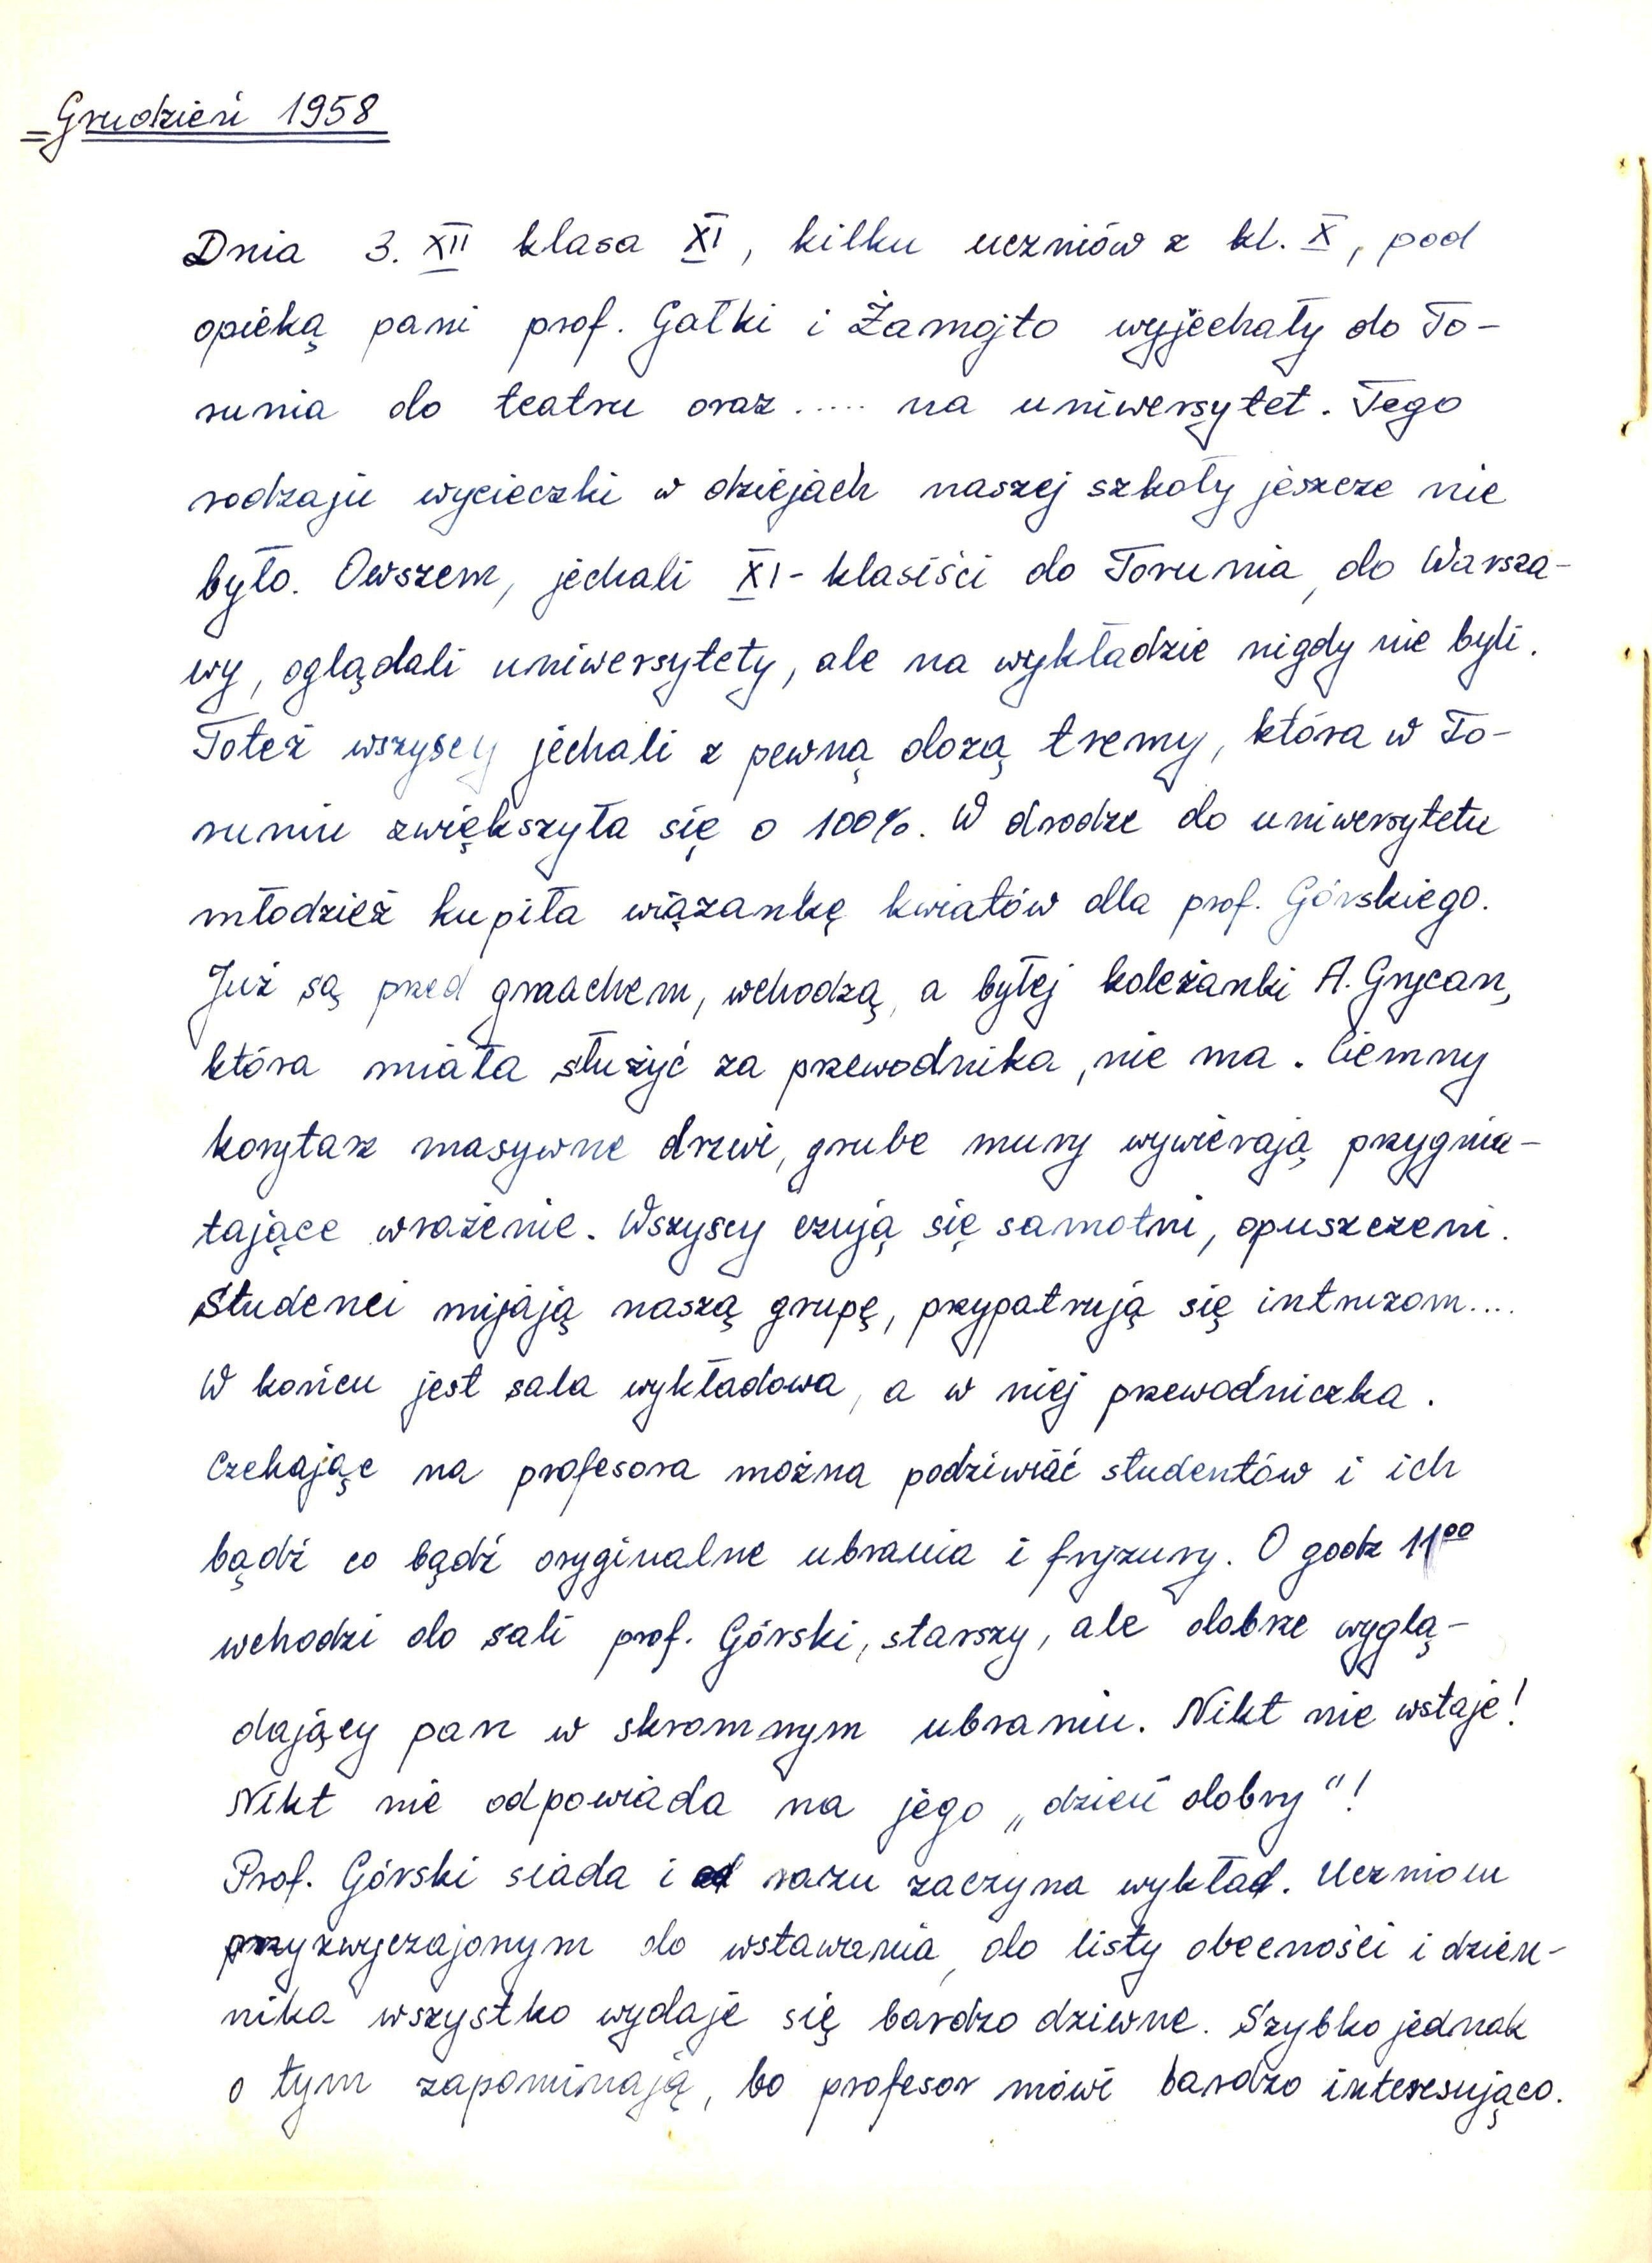 Grudzień 1958
Dnia 3. XII klasa XI, kilku uczniów z kl. X, pod
opieką pani prof. Gałki i Żamojto wyjechały do To-
runia do teatru oraz ..... na uniwersytet. Tego
rodzaju wycieczki w dziejach naszej szkoły jeszcze nie
było. Owszem, jechali XI-klasiści do Torunia, do Warsza-
wy, oglądali uniwersytety, ale na wykładzie nigdy nie byli.
Toteż wszyscy jechali z pewną dozą tremy, która w To-
runiu zwiększyła się o 100%. W drodze do uniwersytetu
młodzież kupiła wiązankę kwiatów dla prof. Górskiego.
Już są przed gmachem, wchodzą, a byłej koleżanki A. Grycan,
która miała służyć za przewodnika, nie ma. Ciemny
korytarz masywne drzwi, grube mury wywierają przygnia-
tające wrażenie. Wszyscy czują się samotni, opuszczeni.
Studenci mijają naszą grupę, przypatrują się intruzom....
W końcu jest sala wykładowa, a w niej przewodniczka.
Czekając na profesora można podziwiać studentów i ich
bądź co bądź oryginalne ubrania i fryzury. O godz 11⁰⁰
wchodzi do sali prof. Górski, starszy, ale dobrze wyglą-
dający pan w skromnym ubraniu. Nikt nie wstaje!
Nikt nie odpowiada na jego „dzień dobry"!
Prof. Górski siada i od razu zaczyna wykład. Uczniom
przyzwyczajonym do wstawania, do listy obecności i dzien-
nika wszystko wydaje się bardzo dziwne. Szybko jednak
o tym zapominają, bo profesor mówi bardzo interesująco.